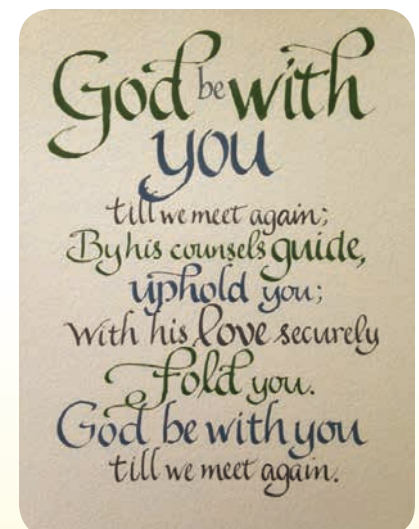 God be with
you
till we meet again;
By his counsels guide,
uphold you;
with his love securely
fold you.
God be with you
till we meet again.